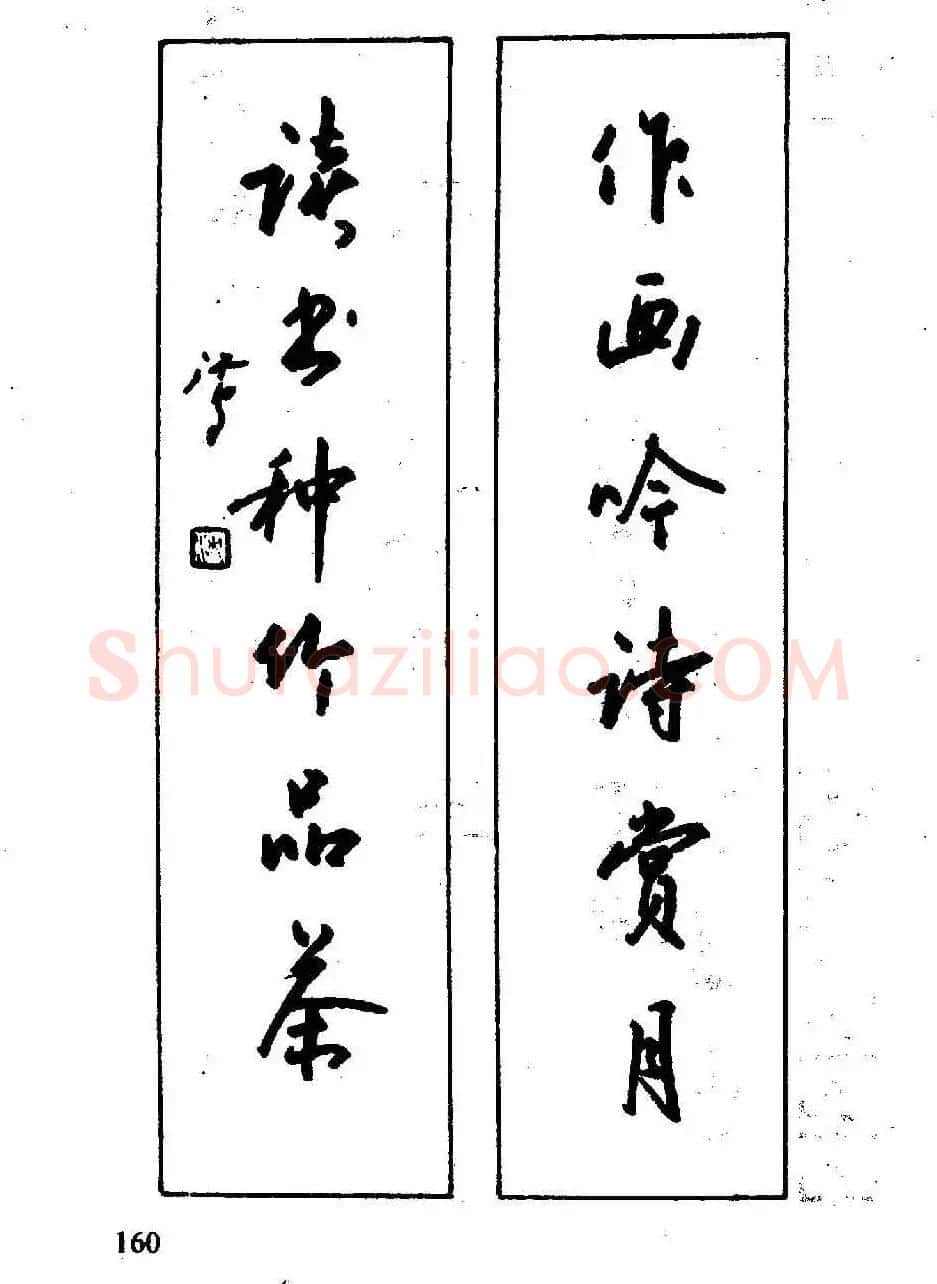 作画吟诗赏月
读书种竹品茶
Shufaziliao.COM
160